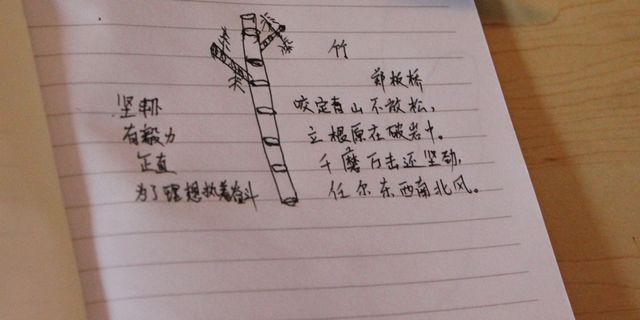 竹
郑板桥
咬定青山不放松,
立根原在破岩中。
千磨万击还坚劲,
任尔东西南北风。
坚韧
有毅力
正直
为了理想执着奋斗